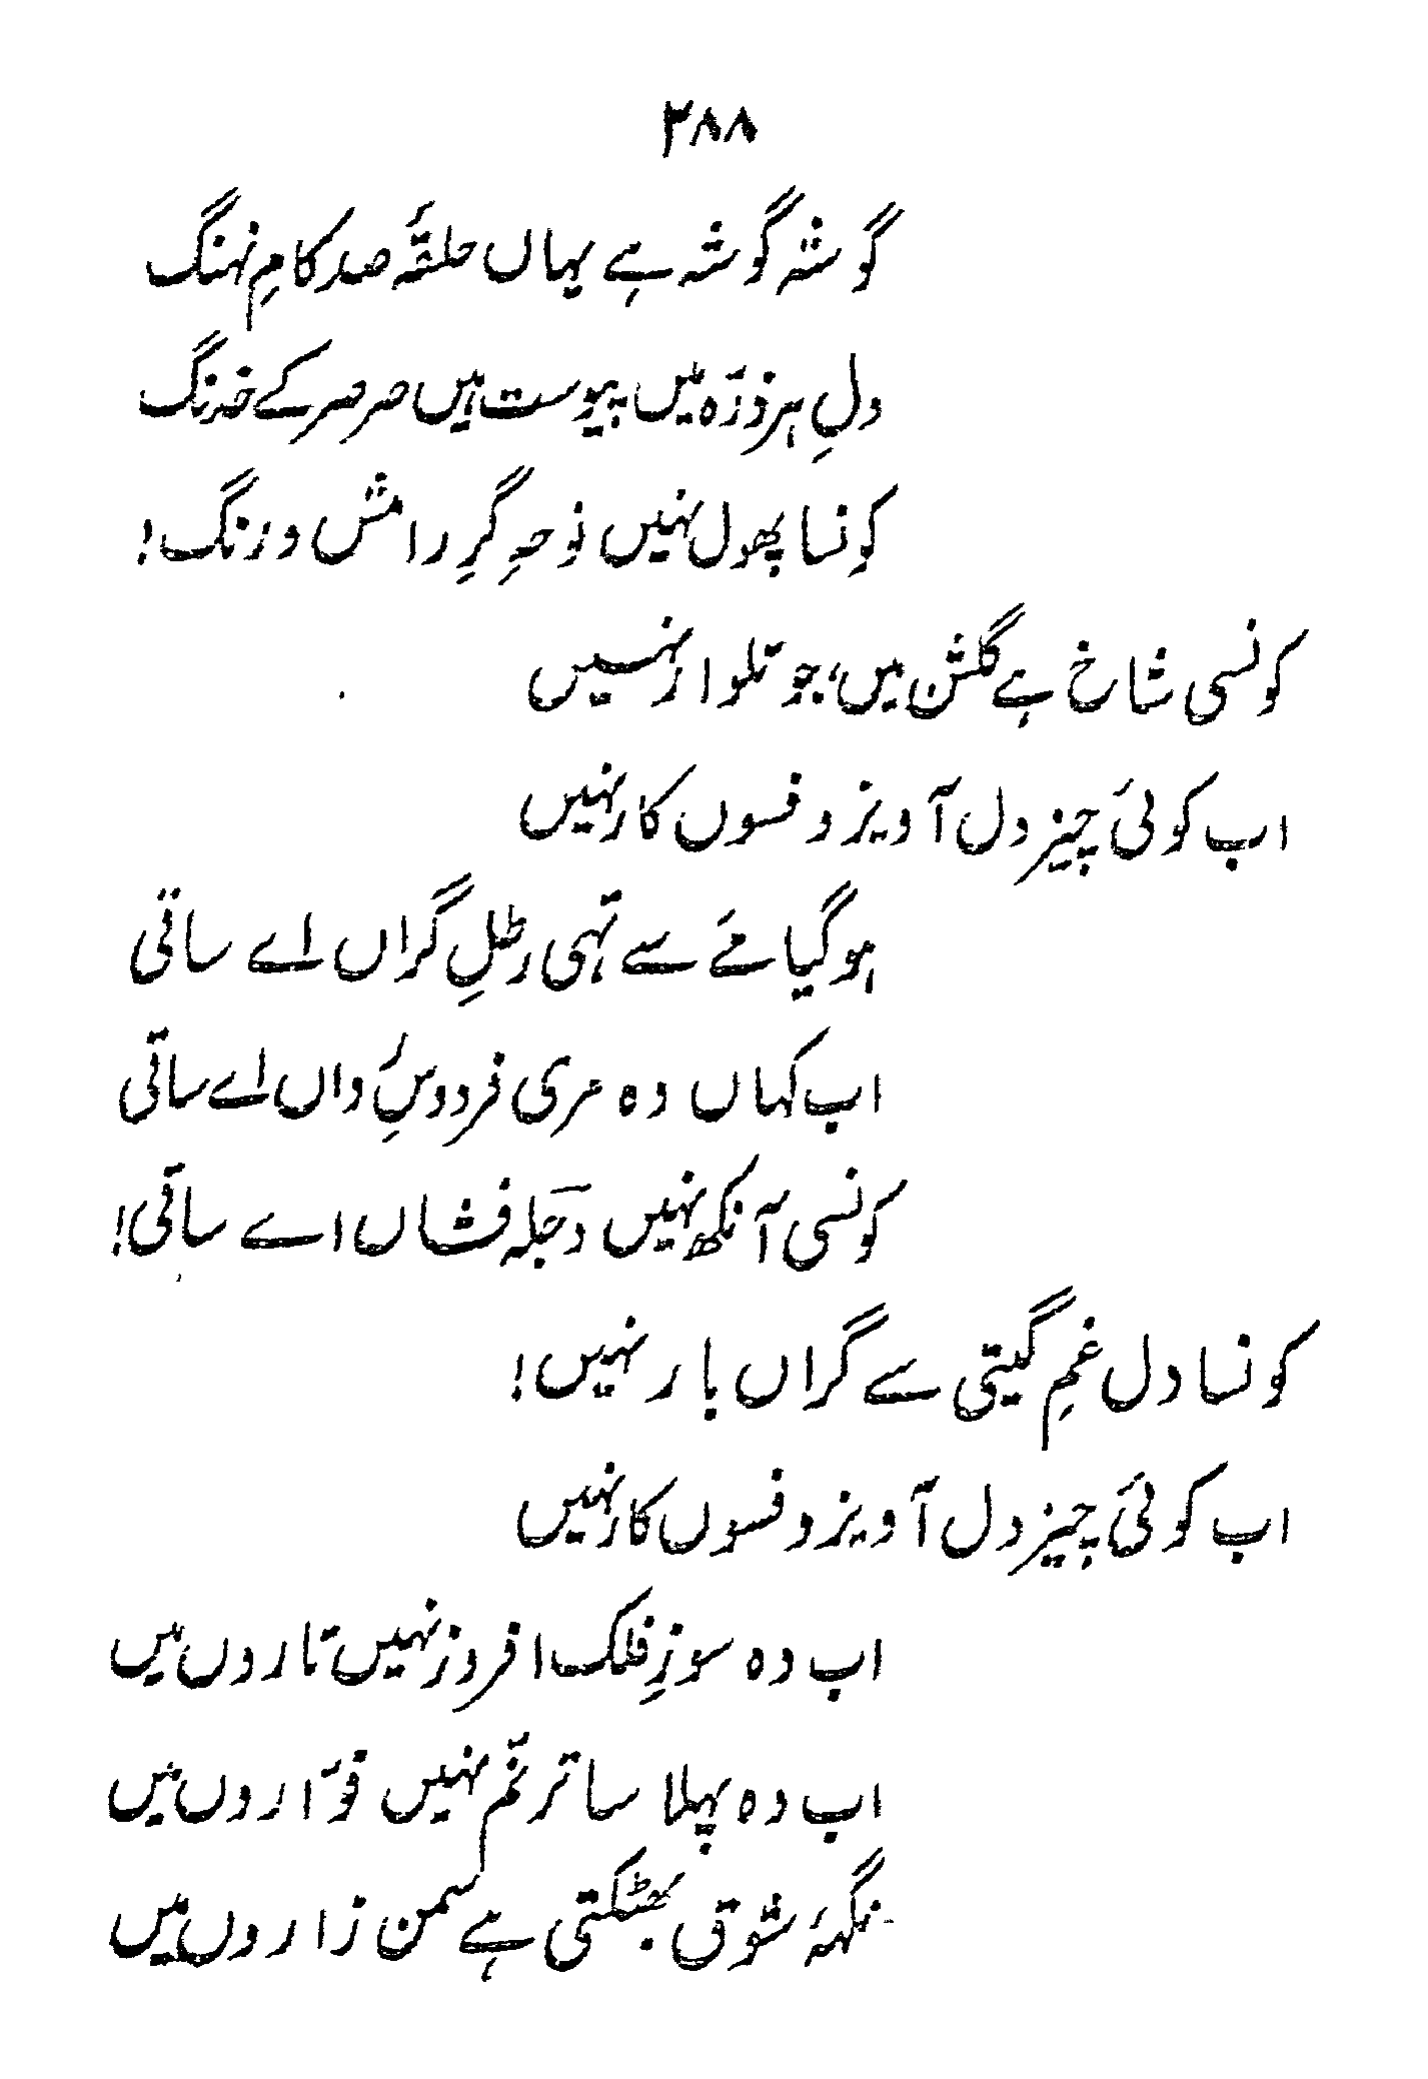 ۳۸۸
گوشہ گوشہ ہے یہاں حلقۂ صد کامِ نہنگ
دلِ ہر ذرّہ میں پیوست ہیں صرصر کے خدنگ
کونسا پھول نہیں نوحہِ گرِ رامش و رنگ!
کونسی شاخ ہے گلشن میں، جو تلوار نہیں
اب کوئی چیز دل آویز و فسوں کار نہیں
ہو گیا مئے سے تہی رطلِ گراں اے ساقی
اب کہاں وہ مری فردوسِ رواں اے ساقی
کونسی آنکھ نہیں دجلہ فشاں اے ساقی!
کونسا دل غمِ گیتی سے گراں بار نہیں!
اب کوئی چیز دل آویز و فسوں کار نہیں
اب وہ سوزِ فلک افروز نہیں تاروں میں
اب وہ پہلا سا ترنّم نہیں فوّاروں میں
نگہۂ شوق بھٹکتی ہے سمن زاروں میں